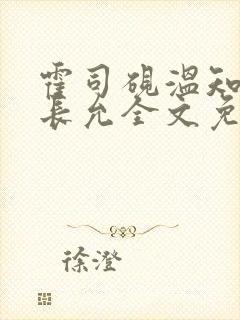 霍司砚温知
长允全文免
徐澄